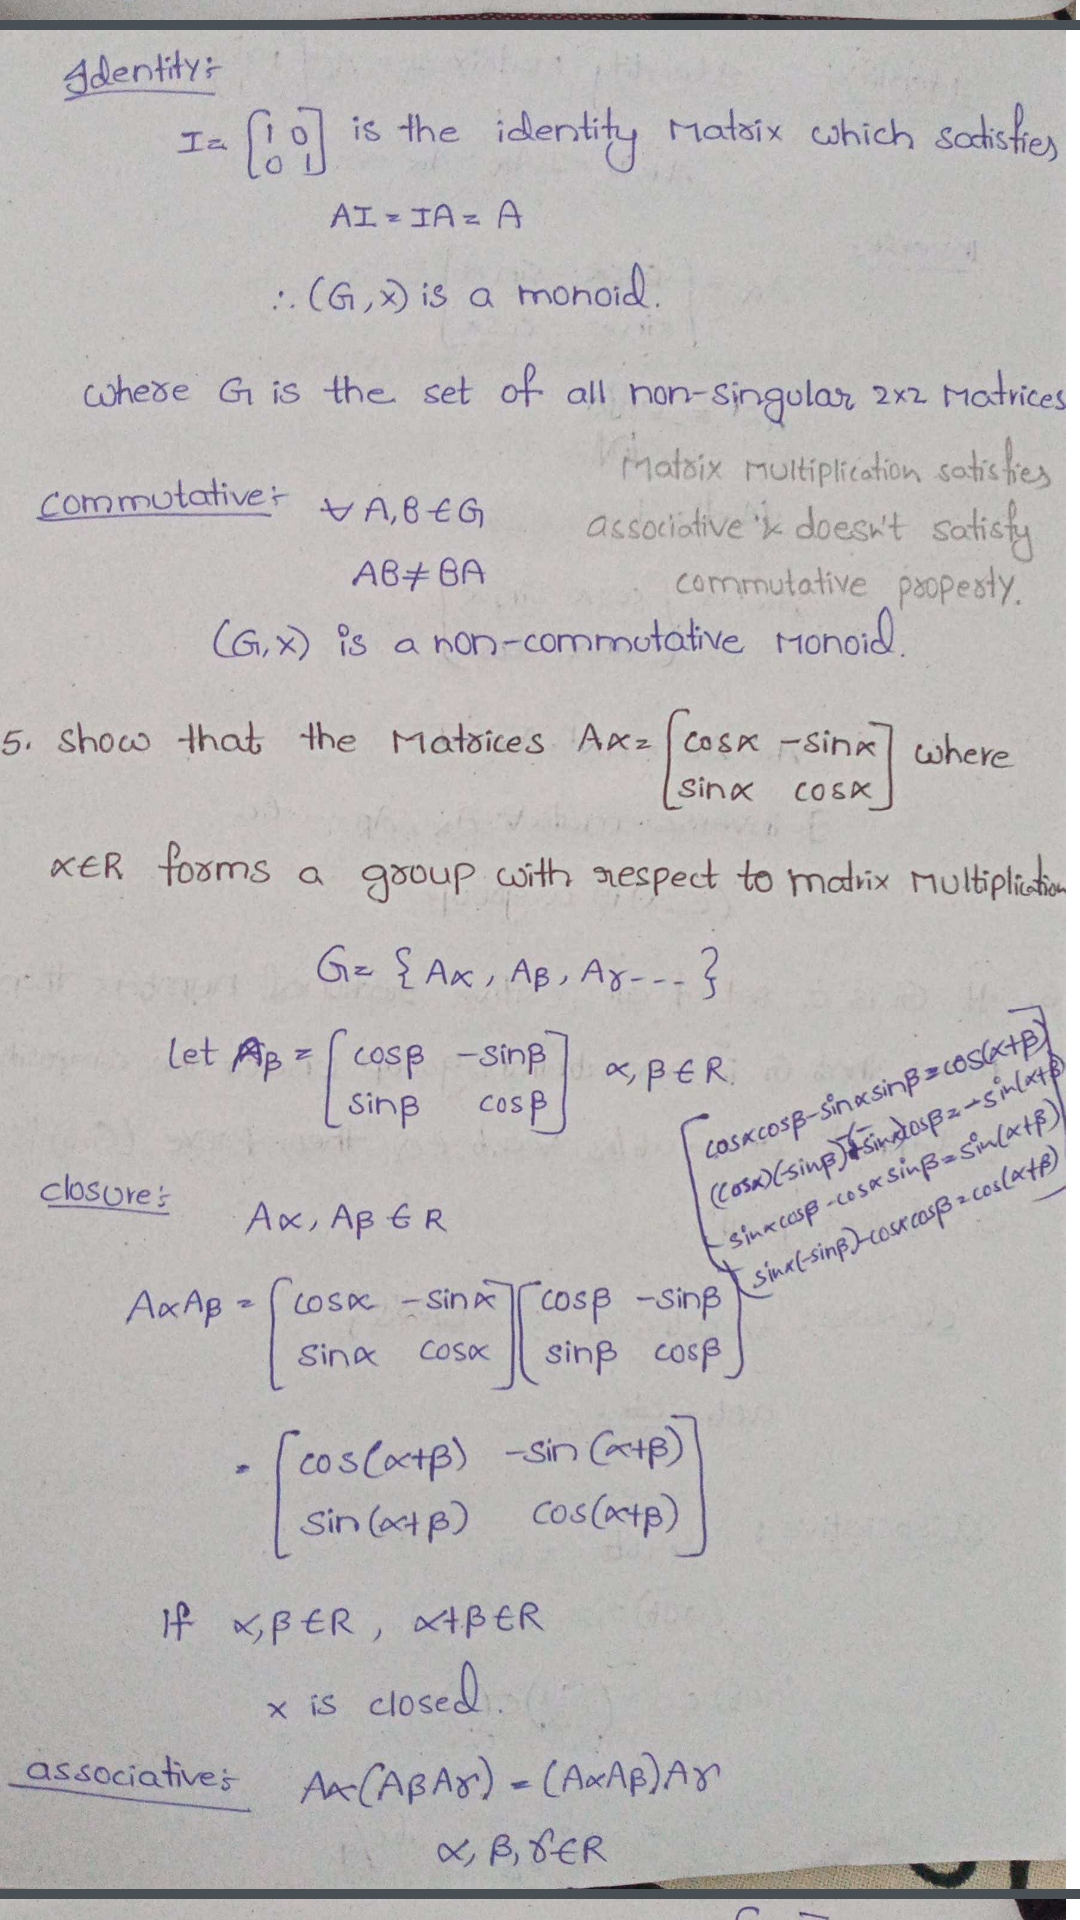 Identity:-
I = [1 0
0 1] is the identity Matrix which satisfies
AI = IA = A
∴ (G,x) is a monoid.
where G is the set of all non-singular 2x2 Matrices
Matrix Multiplication satisfies
associative & doesn't satisfy
commutative property.
commutative:- ∀ A,B ∈ G
AB ≠ BA
(G,x) is a non-commutative Monoid.
5. Show that the Matrices Aα = [cosα -sinα
sinα cosα] where
α∈R forms a group with respect to matrix Multiplication
G = { Aα, Aβ, Aγ--- }
Let Aβ = [cosβ -sinβ
sinβ cosβ] α, β ∈ R.
[cosαcosβ-sinαsinβ = cos(α+β)
(cosα)(-sinβ)+(-sinα)cosβ = -sin(α+β)
sinαcosβ-cosαsinβ = sin(α+β)
sinα(-sinβ)-cosαcosβ = cos(α+β)]
closure:- Aα, Aβ ∈ R
AαAβ = [cosα -sinα
sinα cosα] [cosβ -sinβ
sinβ cosβ]
= [cos(α+β) -sin(α+β)
sin(α+β) cos(α+β)]
If α,β∈R, α+β∈R
x is closed.
associative:- Aα(AβAγ) = (AαAβ)Aγ
α, β, γ∈R